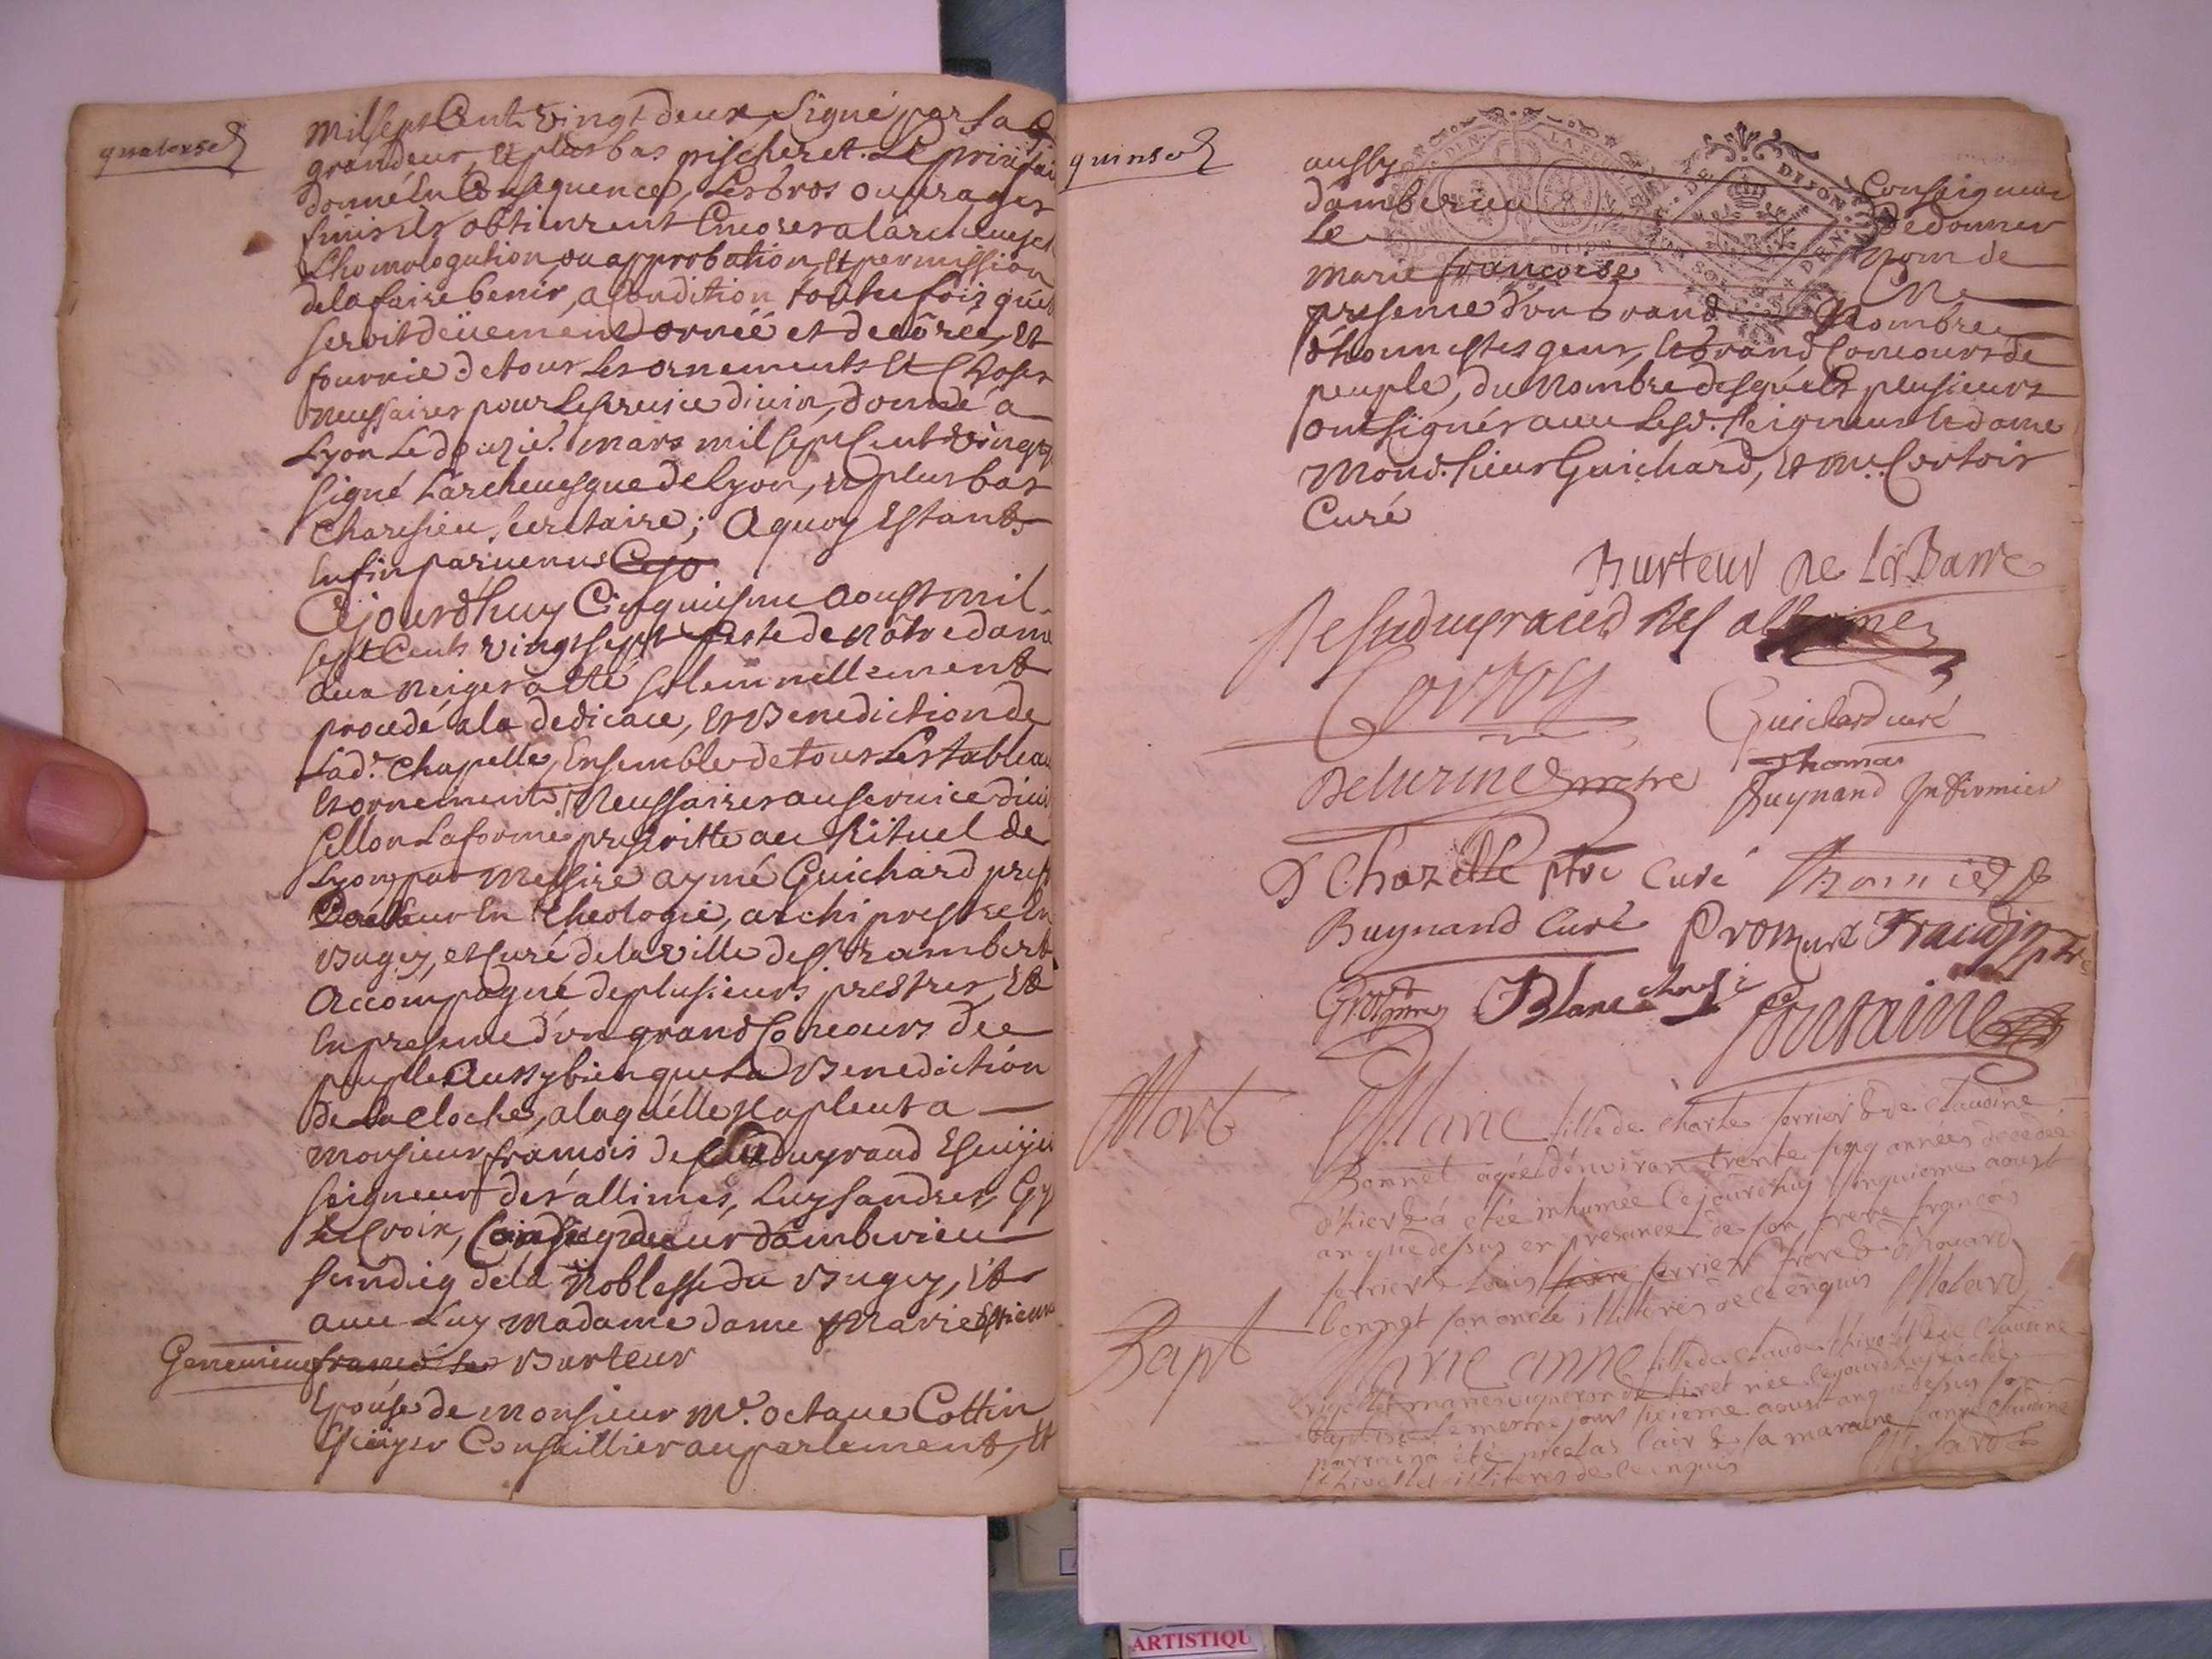 quatorze
mil sept Cent vingt deux, Signé par sa
grandeur, et plus bas pischeret. Le prix fai
donné En Consequence, Les Gros ouvrages
finis ils obtinrent Encores a l'archevesché
L'homologation, ou approbation, et permission
de la faire benir, a Condition toutte fois qu'el
seroit deüement ornéé et decôrée, Et
fournie de tous Les ornements Et Choses
necessaires pour Le service divin, donné à
Lyon Le douzie. mars mil sept Cent vingt
signé L'archevesque de Lyon, et plus bas
Secretaire; A quoy Estants
Enfin parvenus
Cejourd'huy Cinquiesme Aoust mil
sept Cents vingt sept feste de nôtre dame
aux neiges a été solemnellement
procédé a la dedicace, et Benediction de
Lad.e chapelle, Ensemble de tous Les tableau
Et ornements Necessaires au service divin
sellon La forme prescritte au Rituel de
Lyon par Messire aymé Guichard prest
Docteur En theologie, archiprestre En
Bugey, et Curé de la ville de St. rambert
Accompagné de plusieurs prestres, Et
En presence d'un grand Concours de
peuple Aussy bien que La Benediction
De La Cloche, a laquelle Il a pleut a
monsieur françois de Escuÿer
seigneur des allimes, Luysandres, Gy
La Croix, Conseigneur d'ambérieu
scindicq de la Noblesse du Bugey, Et
avec Luy madame dame Marie
Genevieve françoise Burteur
Epouse de Monsieur Mr. octave Cottin
Escuÿer Conseillier au parlement, Et
quinse
aussy Conseigneur
d'amberieu De donner
Le nom de
marie françoise En
presence d'un Grand Nombre
d'honnestes gens, Et Grand Concours de
peuple, du Nombre desquels plusieurs
ont signés avec Lesd. seigneur Et dame
Mond. sieur Guichard, Et mr. Cortois
Curé
DIJON
Burteur De La Barre
Cortois
Guichard curé
Thomas
Buynand Infirmier
D Chazelle ptre Curé
Buynand Curé
Blanc
Fontaine
Mort
Marie fille de charle ferrier & de claudine
Bonnet agée d'environ trente sinq années decedée
d'hier & a etée inhumée Cejourd'huy sinquieme aoust
an que dessus en presance de son frere françois
ferrier & Louis ferrier frere &
bonnet son oncle illitérés de ce enquis Molard
Bapt
Marie anne fille de claude & de claudine
née cejourd'huy
baptisée le mesme jour sixieme aoust an que dessus son
parrain a été nicolas clair & sa maraine anne claudine
illiteres de ce enquis Molard
ARTISTIQU